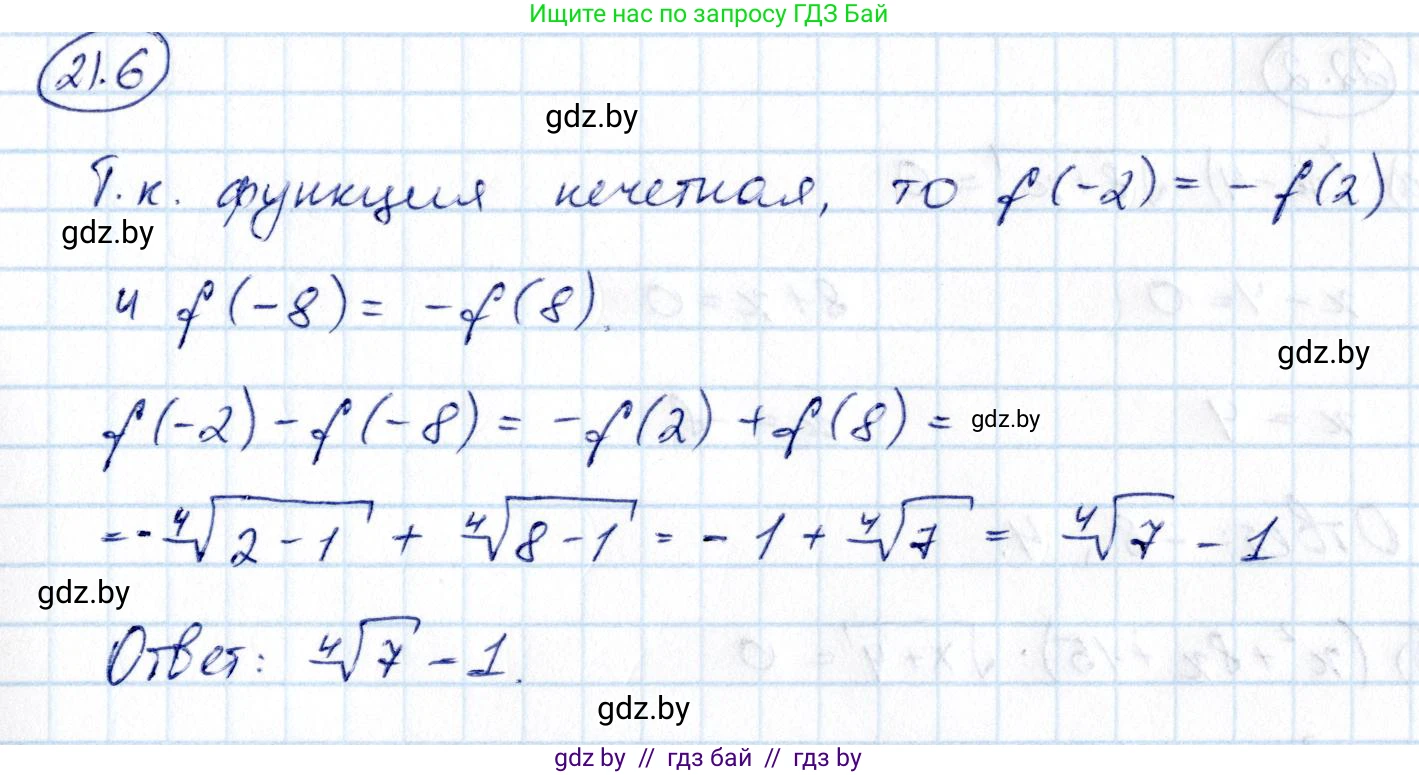 Ищите нас по запросу ГДЗ Бай
21.6
gdz.by
Т.к. функция нечетная, то f(-2) = - f(2)
gdz.by
и f(-8) = -f(8).
gdz.by
f(-2) - f(-8) = -f(2) + f(8) = gdz.by
= -⁴√(2-1) + ⁴√(8-1) = -1 + ⁴√7 = ⁴√7 - 1
gdz.by
Ответ: ⁴√7 - 1.
gdz.by
gdz by // гдз бай // гдз by